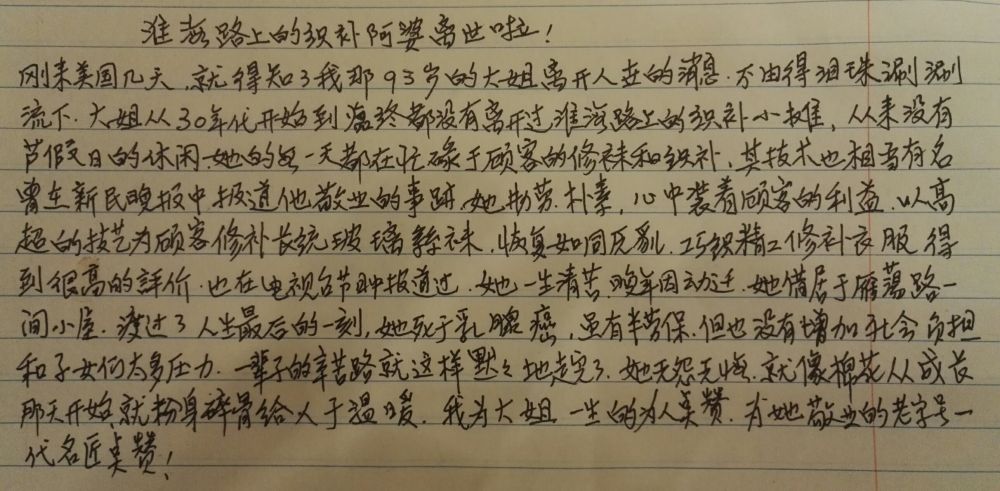 淮海路上的织补阿婆离世啦!
刚来美国几天,就得知了我那93岁的大姐离开人世的消息.不由得泪珠涮涮
流下.大姐从30年代开始到临终都没有离开过淮海路上的织补小摊,从来没有
节假日的休闲.她的每一天都在忙碌于顾客的修袜和织补,其技术也相当有名
曾在新民晚报中报道他敬业的事跡.她勤劳.朴素,心中装着顾客的利益.以高
超的技艺为顾客修补长统玻璃丝袜,恢复如同原乳.巧织精工修补衣服得
到很高的評价.也在电视台节目中报道过.她一生清苦.晚年因动迁.她借居于雁荡路一
间小屋.渡过了人生最后的一刻,她死于乳腺癌,虽有半劳保.但也没有增加社会负担
和子女们太多压力.一辈子的辛苦路就这样默々地走完了.她无怨无悔.就像棉花从成长
那天开始就粉身碎骨给人于温暖.我为大姐一生的为人点赞.为她敬业的老字号一
代名匠点赞!